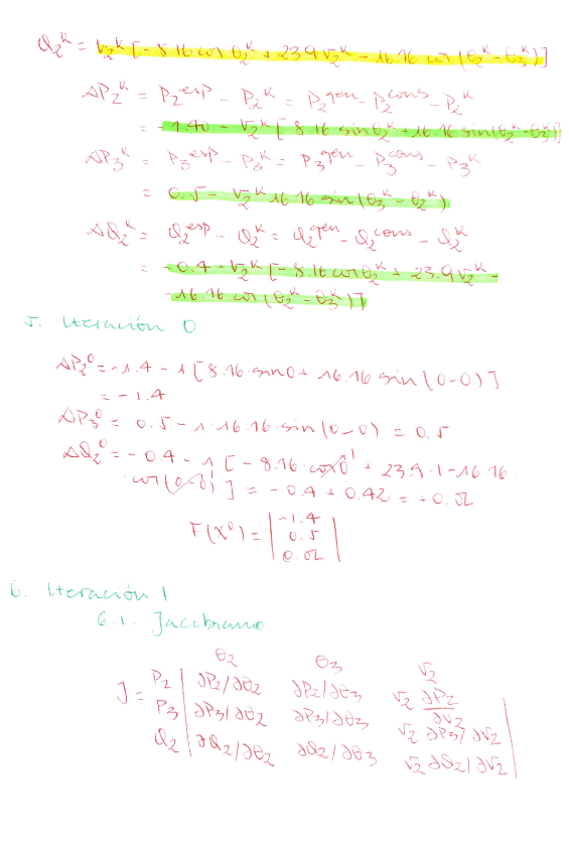 Q₂ᵏ = V₂ᵏ [-8.16 cos θ₂ᵏ + 23.9 V₂ᵏ - 16.16 cos (θ₂ᵏ - θ₃ᵏ)]
ΔP₂ᵏ = P₂ᵉˢᵖ - P₂ᵏ = P₂ᵍᵉⁿ - P₂ᶜᵒⁿˢ - P₂ᵏ
= -1.40 - V₂ᵏ [8.16 sin θ₂ᵏ + 16.16 sin (θ₂ᵏ - θ₃ᵏ)]
ΔP₃ᵏ = P₃ᵉˢᵖ - P₃ᵏ = P₃ᵍᵉⁿ - P₃ᶜᵒⁿˢ - P₃ᵏ
= 0.5 - V₂ᵏ 16.16 sin (θ₃ᵏ - θ₂ᵏ)
ΔQ₂ᵏ = Q₂ᵉˢᵖ - Q₂ᵏ = Q₂ᵍᵉⁿ - Q₂ᶜᵒⁿˢ - Q₂ᵏ
= -0.4 - V₂ᵏ [-8.16 cos θ₂ᵏ + 23.9 V₂ᵏ -
-16.16 cos (θ₂ᵏ - θ₃ᵏ)]
5. Iteración 0
ΔP₂⁰ = -1.4 - 1 [8.16 · sin 0 + 16.16 sin (0-0)]
= -1.4
ΔP₃⁰ = 0.5 - 1 · 16.16 · sin (0-0) = 0.5
ΔQ₂⁰ = -0.4 - 1 [-8.16 · cos 0 1 + 23.9 · 1 - 16.16 ·
· cos (0-0) 1 ] = -0.4 + 0.42 = +0.02
F(X⁰) = | -1.4
0.5
0.02 |
6. Iteración 1
6.1. Jacobiano
θ₂ θ₃ V₂
J = P₂ | ∂P₂/∂θ₂ ∂P₂/∂θ₃ V₂ ∂P₂/∂V₂
P₃ ∂P₃/∂θ₂ ∂P₃/∂θ₃ V₂ ∂P₃/∂V₂
Q₂ ∂Q₂/∂θ₂ ∂Q₂/∂θ₃ V₂ ∂Q₂/∂V₂ |